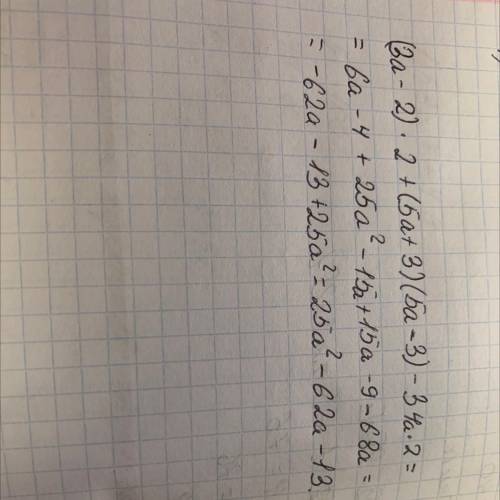 (3a - 2) · 2 + (5a + 3)(5a - 3) - 34a · 2 =
= 6a - 4 + 25a² - 15a + 15a - 9 - 68a =
= -62a - 13 + 25a² = 25a² - 62a - 13.